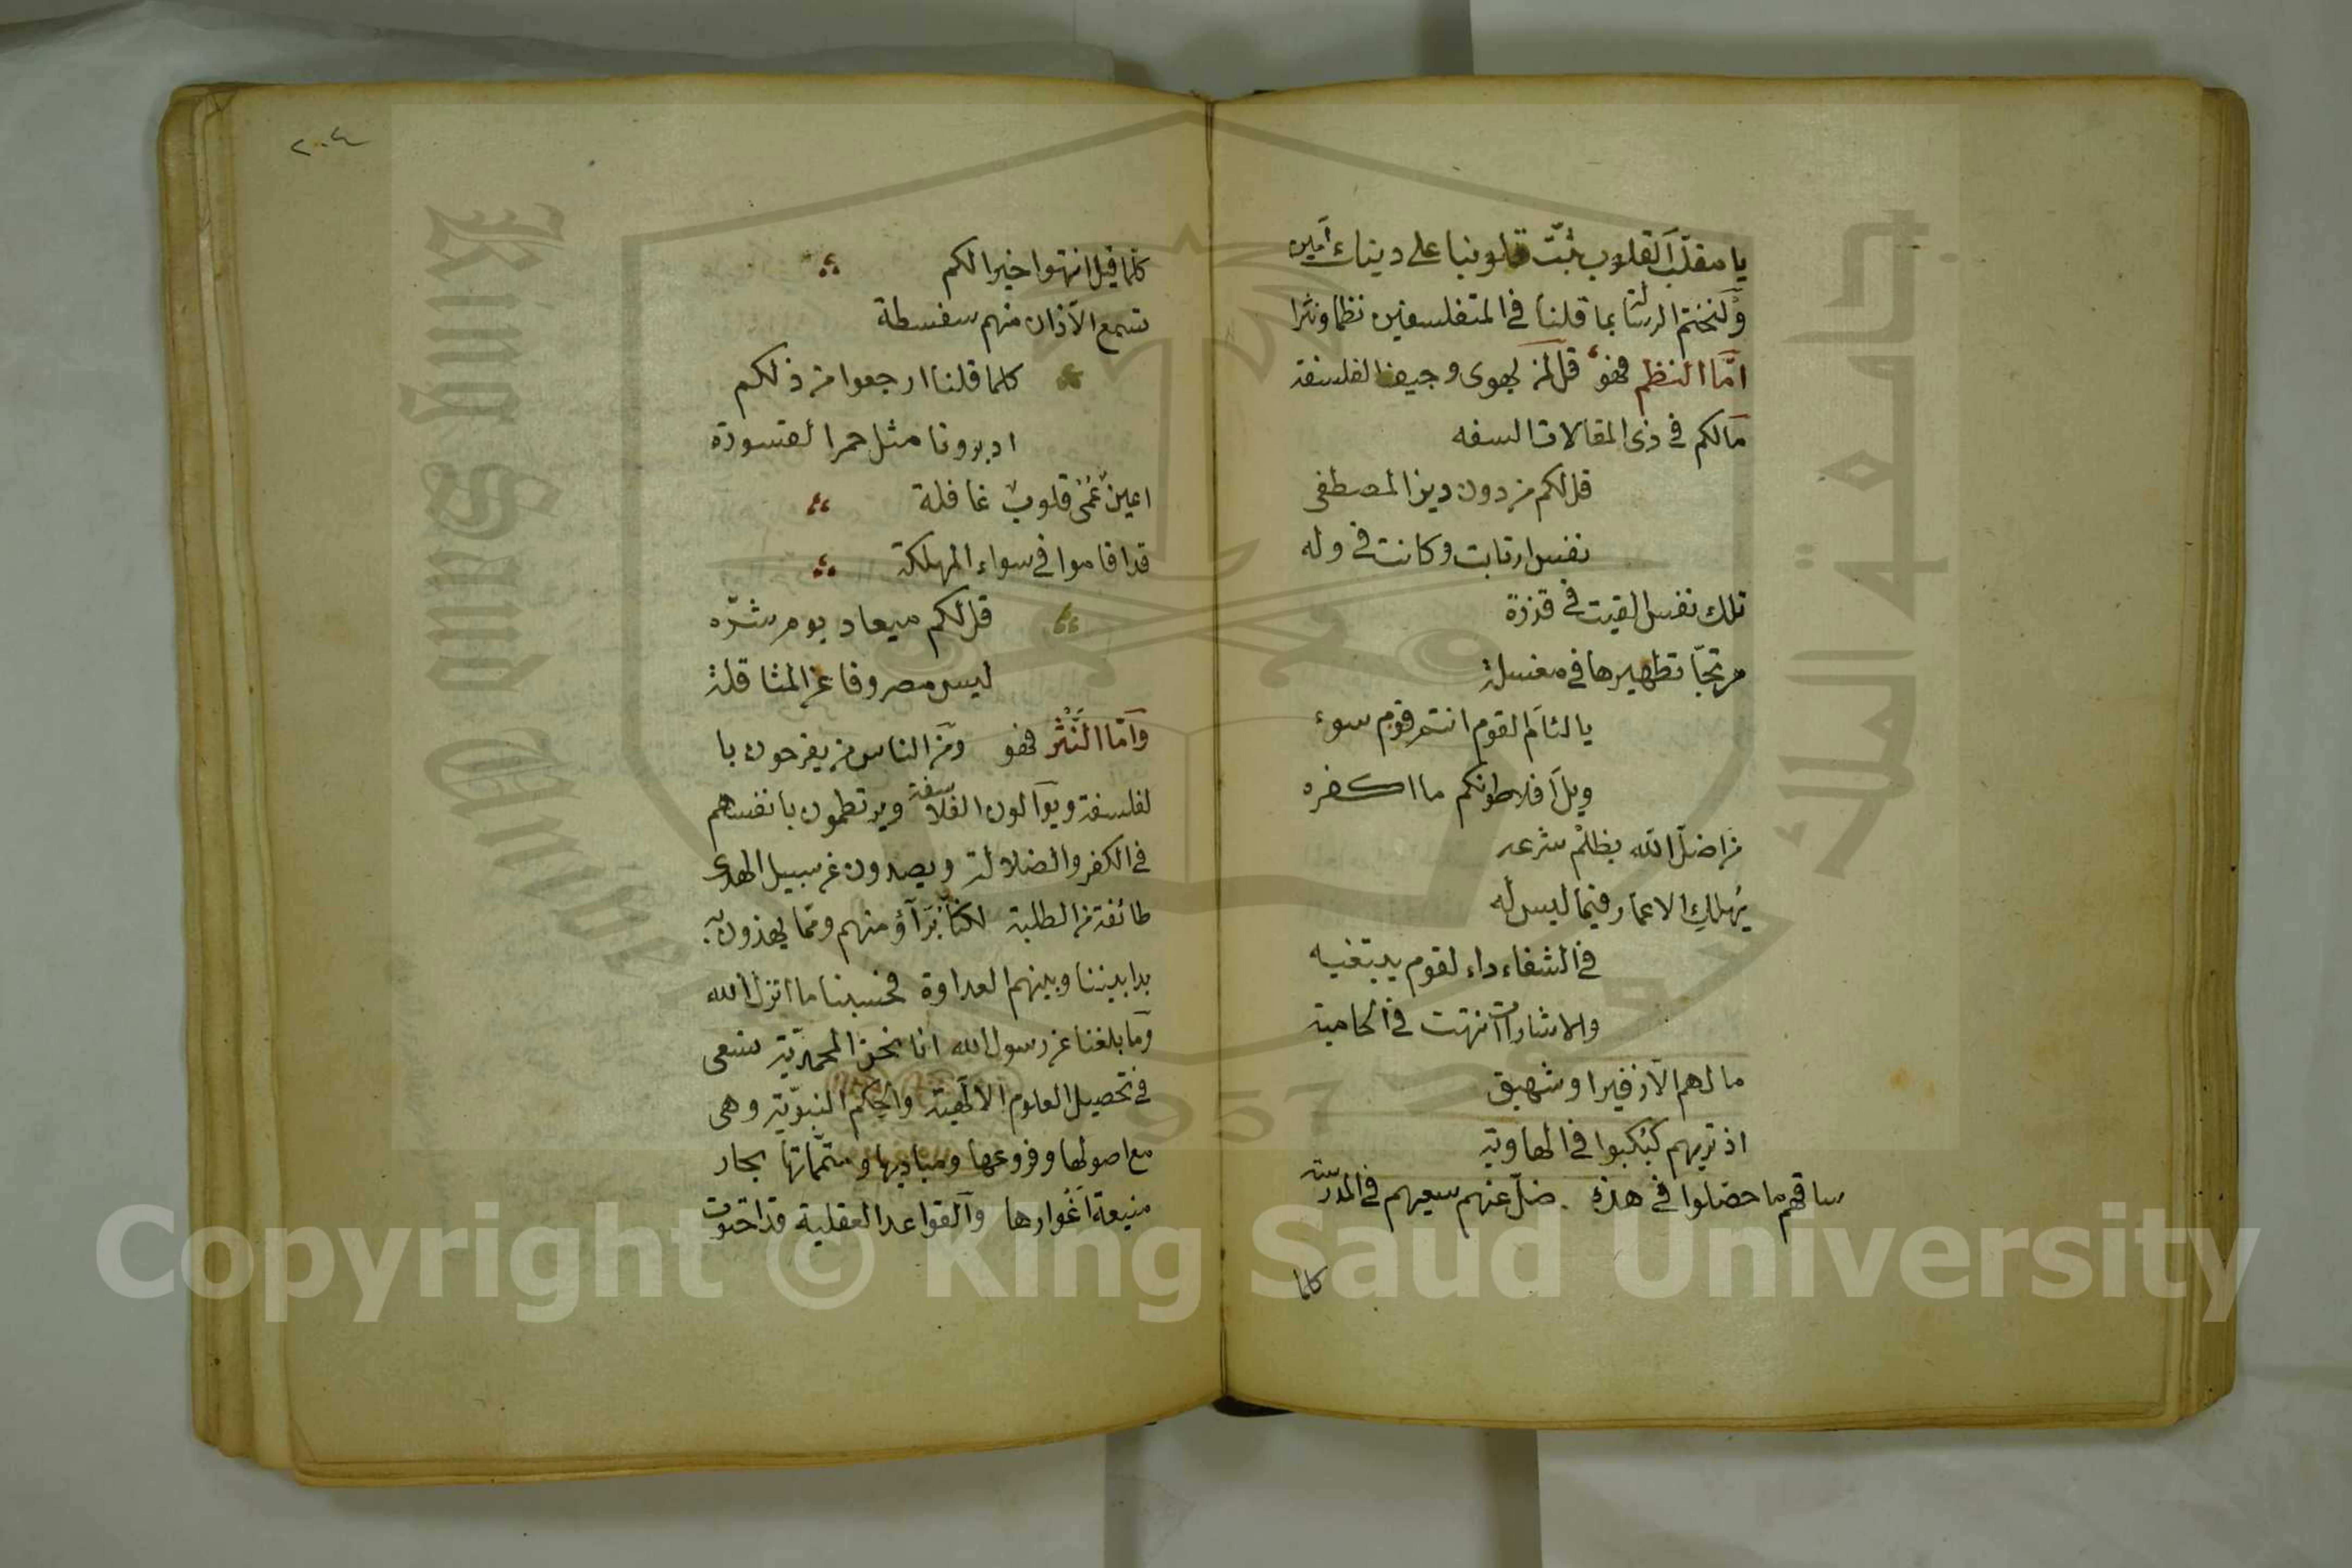 يا مقلّب القلوب ثبّت قلوبنا على دينك آمين
ولنختم الرسالة بما قلنا في المتفلسفين نظما ونثرا
امّا النظم فهو قل لمن يهوى وجيف الفلسفة
مالكم في ذى المقالات السفه
قل لكم من دون دين المصطفى
نفس ارتابت وكانت في وله
تلك نفس القيت في قذرة
مرتجّا تطهيرها في مغسلة
يا لئام القوم انتم قوم سوء
ويل افلاطونكم ما اكفره
من اضلّ الله بظلم شرعه
يهلك الاعمار فيما ليس له
في الشفاء داء لقوم يبتغيه
والاشارات انتهت في الحامية
ما لهم الا زفيرا وشهيق
اذ تريهم كبكبوا في الهاوية
ساقهم ما حصّلوا في هذه ضلّ عنهم سعيهم في المدرسة
كلما
٢٠٤
كلما قيل انتهوا خيرا لكم
تسمع الآذان منهم سفسطة
كلما قلنا ارجعوا من ذلكم
ادبرونا مثل حمر القسورة
اعين عمى قلوب غافلة
قد اقاموا في سواء المهلكة
قل لكم ميعاد يوم شرّه
ليس مصروفا عن المثاقلة
وامّا النّثر فهو ومن الناس من يفرحون با
لفلسفة ويوالون الفلاسفة ويرتطمون بانفسهم
في الكفر والضلالة ويصدون عن سبيل الهدى
طائفة من الطلبة لكنا برآؤ منهم وممّا يهذون به
بدا بيننا وبينهم العداوة فحسبنا ما انزل الله
وما بلغنا عن رسول الله انا نحن المحمديّة نسعى
في تحصيل العلوم الالهية والحكم النبويّة وهى
مع اصولها وفروعها ومباديها ومتمّماتها بحار
منيعة اغوارها والقواعد العقلية قد احتوت
King Saud University
جامعة الملك
1957
Copyright © King Saud University